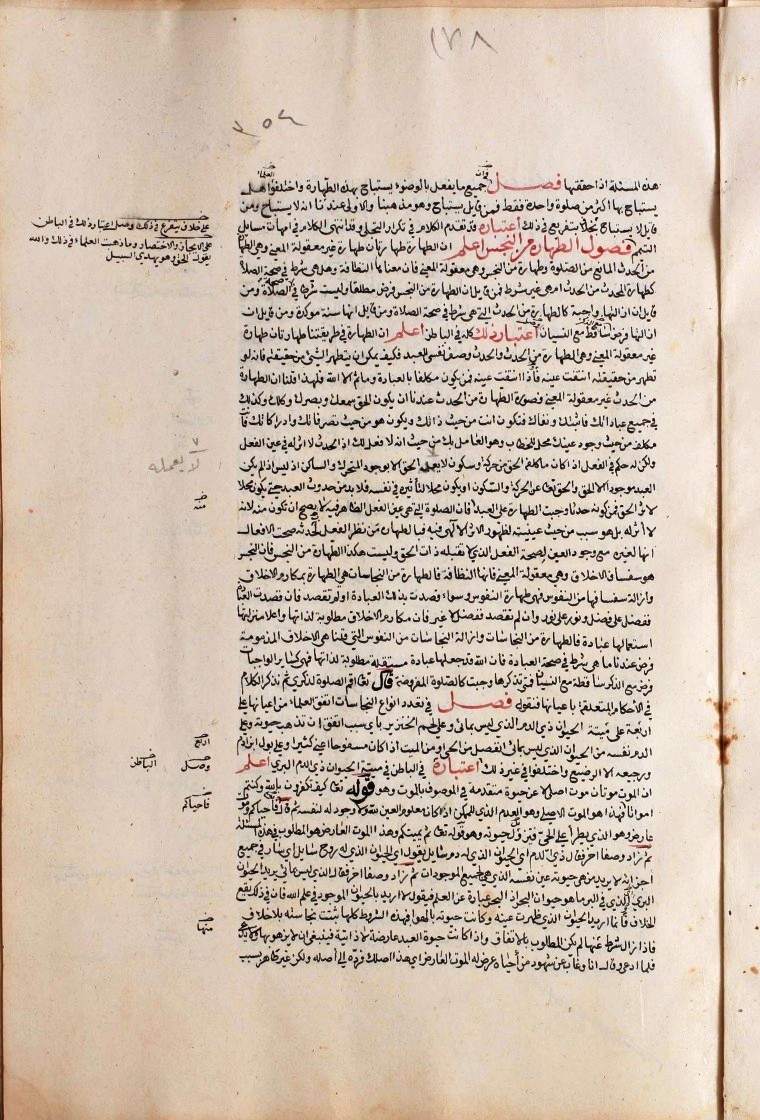 ١٧٨
٣٥٤
هذه المسئلة اذا حققتها فصل جميع ما يفعل بالوضوء يستباح بهذه الطهارة واختلفوا هل
يستباح بها اكثر من صلوة واحدة فقط فمن قايل يستباح وهو مذهبنا والاولى عندنا انه لا يستباح ومن
قايل لا يستباح بتفريع في ذلك اعتباره قد تقدم الكلام في تكرار التجلي وقد انتهى الكلام في امهات مسايل
التيمم فصول الطهارة من النجس اعلم ان الطهارة طهارتان طهارة غير معقولة المعنى وهي الطهارة
من الحدث المانع من الصلوة وطهارة من النجس وهي معقولة المعنى فان معناها النظافة وهل هي شرط في صحة الصلاة
كطهارة المحدث من الحدث ام هي غير شرط فمن قايل ان الطهارة من النجس فرض مطلقا وليست شرط في صحة الصلاة ومن
قايل ان انها واجبة كالطهارة من الحدث التي هي شرط في صحة الصلاة ومن قايل انها سنة موكدة ومن قايل ان
انها فرض ساقط مع النسيان اعتبار ذلك كله في الباطن اعلم ان الطهارة في طريقتنا طهارتان طهارة
غير معقولة المعنى وهي الطهارة من الحدث والحدث وصف نفسي للعبد فكيف يمكن ان يتطهر الشيء من حقيقته فانه لو
تطهر من حقيقته انتفت عينه فاذا انتفت عينه فمن يكون مكلفا بالعبادة وما ثم الا الله فلهذا قلنا ان الطهارة
من الحدث غير معقولة المعنى فصورة الطهارة من الحدث عندنا ان يكون الحق سمعك وبصرك وكلك وكذلك
في جميع عباداتك فاثبتك ونفاك فتكون انت من حيث ذاتك ويكون هو من حيث تصرفاتك وادراكاتك فانت
مكلف من حيث وجود عينك محل للخطاب وهو العامل بك من حيث انه لا فعل لك اذ الحدث لا اثر له في عين الفعل
ولكن له حكم في الفعل اذ كان ما كلفه الحق من حركة وسكون لا يعمله الحق الا بوجود المتحرك والساكن اذ ليس اذا لم يكن
العبد موجودا الا الحق والحق تعالى عن الحركة والسكون او يكون محلا لتأثيره في نفسه فلا بد من حدوث العبد حتى يكون محلا
لاثر الحق فمن كونه حدثا وجبت الطهارة على العبد فان الصلوة التي هي عين الفعل الظاهر فيه لا يصح ان تكون منه لانه
لا اثر له بل هو سبب من حيث عينيته لظهور الاثر الالهي فيه فبالطهارة من نظر الفعل لحدثه صحت الافعال
انها لغيره مع وجود العين لصحة الفعل الذي لا تقبله ذات الحق وليست هكذا الطهارة من النجس فان النجس
هو سفساف الاخلاق وهي معقولة المعنى فانها النظافة فالطهارة من النجاسات هي الطهارة بمكارم الاخلاق
وازالة سفسافها من النفوس فهي طهارة النفوس وسواء قصدت بذلك العبادة او لم تقصد فان قصدت العبادة
ففضل على فضل ونور على نور وان لم تقصد ففضل لا غير فان مكارم الاخلاق مطلوبة لذاتها واعلا منزلتها
استعمالها عبادة فالطهارة من النجاسات وازالة النجاسات من النفوس التي قلنا هي الاخلاق المذمومة
فرض عندنا ما هي شرط في صحة العبادة فان الله قد جعلها عبادة مستقلة مطلوبة لذاتها فهي كساير الواجبات
فرض مع الذكر ساقطة مع النسيان فمتى تذكرها وجبت كالصلوة المفروضة قال تعالى اقم الصلوة لذكري ثم نذكر الكلام
في الاحكام المتعلقة باعيانها فنقول فصل في تعدد انواع النجاسات اتفق العلماء من اعيانها على
اربعة على ميتة الحيوان ذي الدم الذي ليس بمائي وعلى لحم الخنزير باي سبب اتفق ان تذهب حيوته وعلى
الدم نفسه من الحيوان الذي ليس بمائي انفصل من الحي او من الميت اذا كان مسفوحا اعني كثيرا وعلى بول ابن ادم
ورجيعه الا الرضيع واختلفوا في غير ذلك اعتباره في الباطن في ميتة الحيوان ذي الدم البري اعلم
ان الموت موتان موت اصلي لا عن حيوة متقدمة في الموصوف بالموت وهو قوله تعالى كيف تكفرون بالله وكنتم
امواتا فهذا هو الموت الاصلي وهو العدم الذي للممكن اذ كان معلوم العين لله ولا وجود له لنفسه ثم قال فاحياكم وموت
عارض وهو الذي يطرأ على الحي فيزيل حيوته وهو قوله تعالى ثم يميتكم وهذا الموت العارض هو المطلوب في هذه المسئلة
ثم زاد وصفا اخر فقال ذي الدم اي الحيوان الذي له دم سايل يقول اي الحيوان الذي له روح سايل اي سار في جميع
اجزائه لا يريد من هي حيوته عين نفسه الذي هي لجميع الموجودات ثم زاد وصفا اخر فقال الذي ليس بمائي يريد الحيوان
البري الذي في البر ما هو حيوان البحر اذ البحر عبارة عن العلم فيقول لا اريد بالحيوان الموجود في علم الله فان في ذلك يقع
الخلاف فانما اريد الحيوان الذي ظهرت عينه وكانت حيوته بالهوا فهذه الشروط كلها ثبتت نجاسته بلا خلاف
فاذا زال شرط منها لم يكن المطلوب بالاتفاق واذا كانت حيوة العبد عارضة لا ذاتية فينبغي ان لا يزهو بها ولا يدعي
فلما ادعى وقال انا وغاب عن شهود من احياه عرض له الموت العارض اي هذا اصلك فرده الى اصله ولكن غير طاهر بسبب
وان
العلما
على خلاف يتفرع في ذلك وصل اعتبار ذلك في الباطن
على الايجاز والاختصار وما ذهبت العلماء في ذلك والله
يقول الحق وهو يهدي السبيل
لا يعمله
منه
اربع
وصل الباطن
فاحياكم
منها